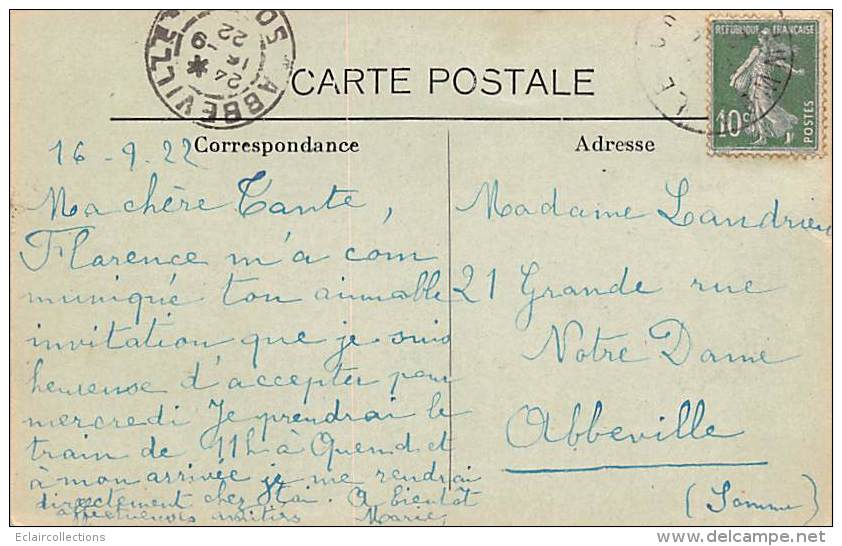 ABBEVILLE SO
24
9
22
CARTE POSTALE
RÉPUBLIQUE FRANÇAISE
10c
POSTES
Correspondance
Adresse
16-9.22
Ma chère Tante,
Florence m'a com
muniqué ton aimable
invitation que je suis
heureuse d'accepter pour
mercredi Je prendrai le
train de 11h à Quend et
à mon arrivée je me rendrai
directement chez toi. A bientôt
affectueuses amitiés Marie
Madame Landrieu
21 Grande rue
Notre Dame
Abbeville
(Somme)
Eclaircollections
www.delcampe.net